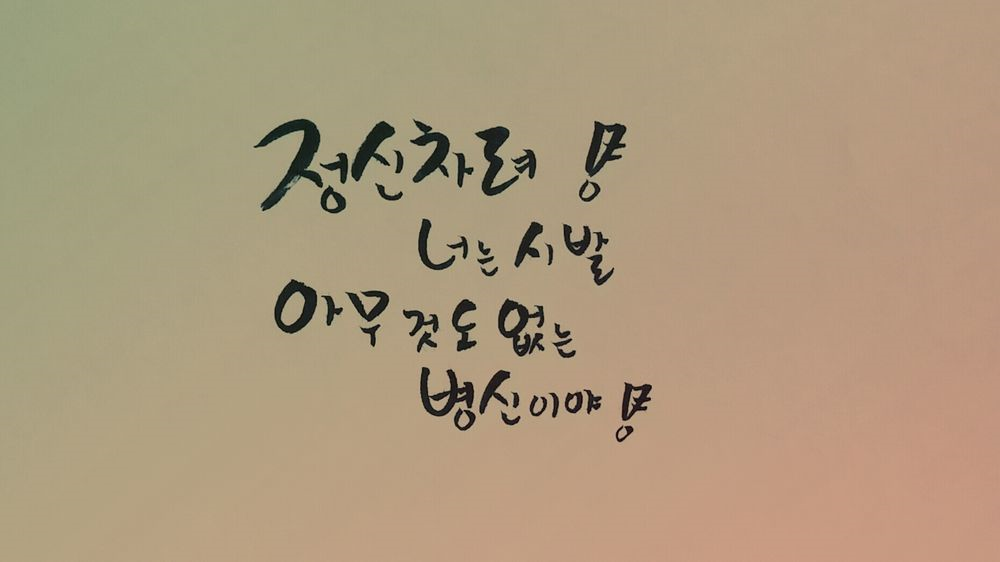 정신차려 !
너는 시발
아무것도 없는
병신이야 !